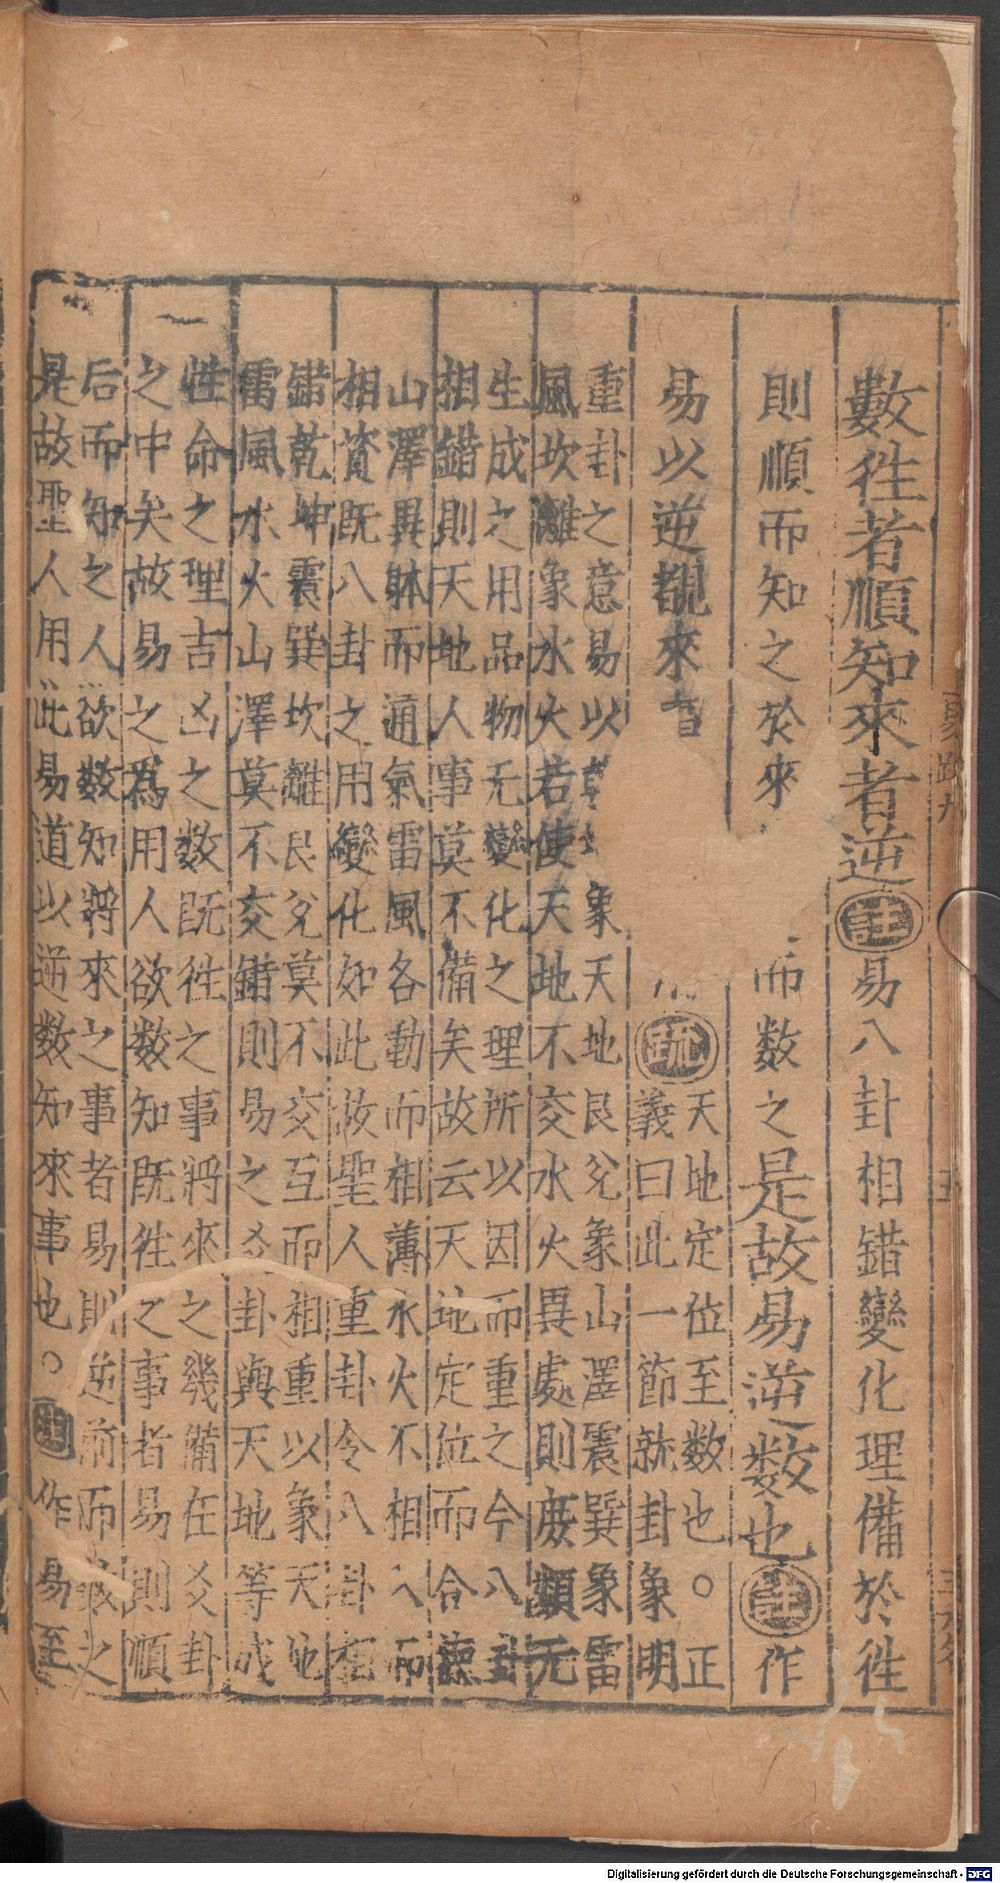 數徃者順知來者逆註易八卦相錯變化理備於徃
則順而知之於來
而数之是故易逆数也註作
易以逆覩來
疏
天地定位至数也○正
義曰此一節就卦象明
重卦之意易以乾
象天地艮兊象山澤震巽象雷
風坎離象水火若使天地不交水火異處則庻類无
生成之用品物无變化之理所以因而重之今八卦
相錯則天地人事莫不備矣故云天地定位而合德
山澤異躰而通氣雷風各動而相薄水火不相入而
相資既八卦之用變化如此故聖人重卦令八卦相
錯乾坤震巽坎離艮兊莫不交互而相重以象天地
雷風水火山澤莫不交錯則易之爻卦與天地等成
性命之理吉凶之数既徃之事將來之幾備在爻卦
之中矣故易之爲用人欲数知既徃之事者易則順
后而知之人欲数知將來之事者易則逆前而数之
是故聖人用此易道以逆数知來事也○註作易至
五
Digitalisierung gefördert durch die Deutsche Forschungsgemeinschaft - DFG